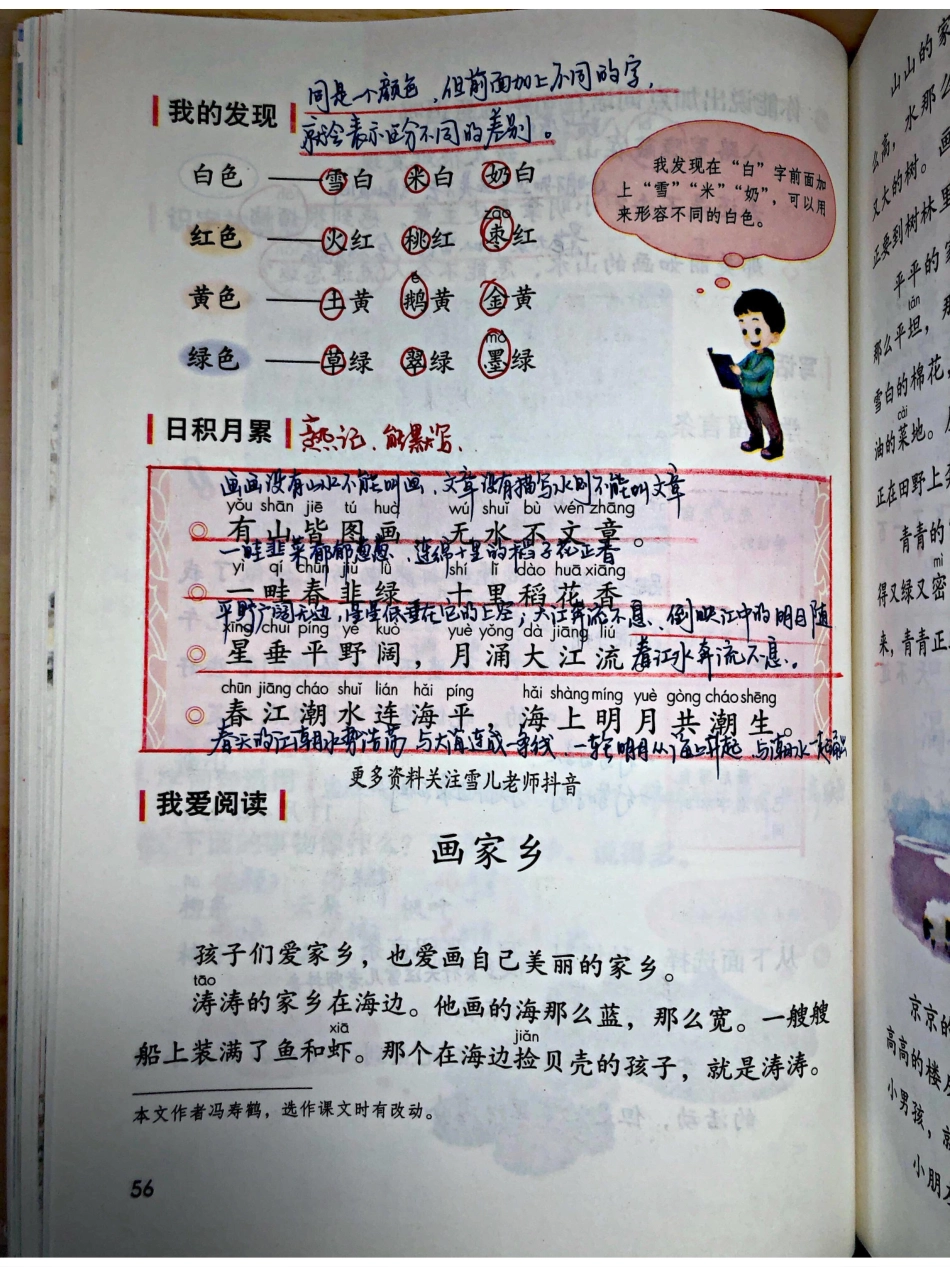 同是一个颜色，但前面加上不同的字，
我的发现
就会表示区分不同的差别。
白色 ——雪白 米白 奶白
我发现在“白”字前面加
上“雪”“米”“奶”，可以用
来形容不同的白色。
zǎo
红色 ——火红 桃红 枣红
é
黄色 ——土黄 鹅黄 金黄
mò
绿色 ——草绿 翠绿 墨绿
日积月累 熟记、能默写。
画画没有山水不能叫画，文章没有描写水则不能叫文章
yǒu shān jiē tú huà wú shuǐ bù wén zhāng
◎ 有山皆图画，无水不文章。
一畦韭菜郁郁葱葱、连绵十里的稻子花正香
yì qí chūn jiǔ lǜ shí lǐ dào huā xiāng
◎ 一畦春韭绿，十里稻花香。
平野广阔无边，星星低垂在它的上空；大江奔流不息、倒映江中的明月随
xīng chuí píng yě kuò yuè yǒng dà jiāng liú
◎ 星垂平野阔，月涌大江流 着江水奔流不息。
chūn jiāng cháo shuǐ lián hǎi píng hǎi shàng míng yuè gòng cháo shēng
◎ 春江潮水连海平，海上明月共潮生。
春天的江潮水势浩荡 与大海连成一条线，一轮明月从海上升起，与潮水一起
更多资料关注雪儿老师抖音
我爱阅读
画家乡
孩子们爱家乡，也爱画自己美丽的家乡。
tāo
涛涛的家乡在海边。他画的海那么蓝，那么宽。一艘艘
xiā jiǎn
船上装满了鱼和虾。那个在海边捡贝壳的孩子，就是涛涛。
本文作者冯寿鹤，选作课文时有改动。
56
山山的家
水那么
么高，
又大的树。画
正要到树林里
平平的家
tǎn
那么平坦，
雪白的棉花，
cài
油的菜地。
正在田野上
青青的
mì
得又绿又密
来，青青正
京京的
高高的楼房
小男孩，就
小朋友